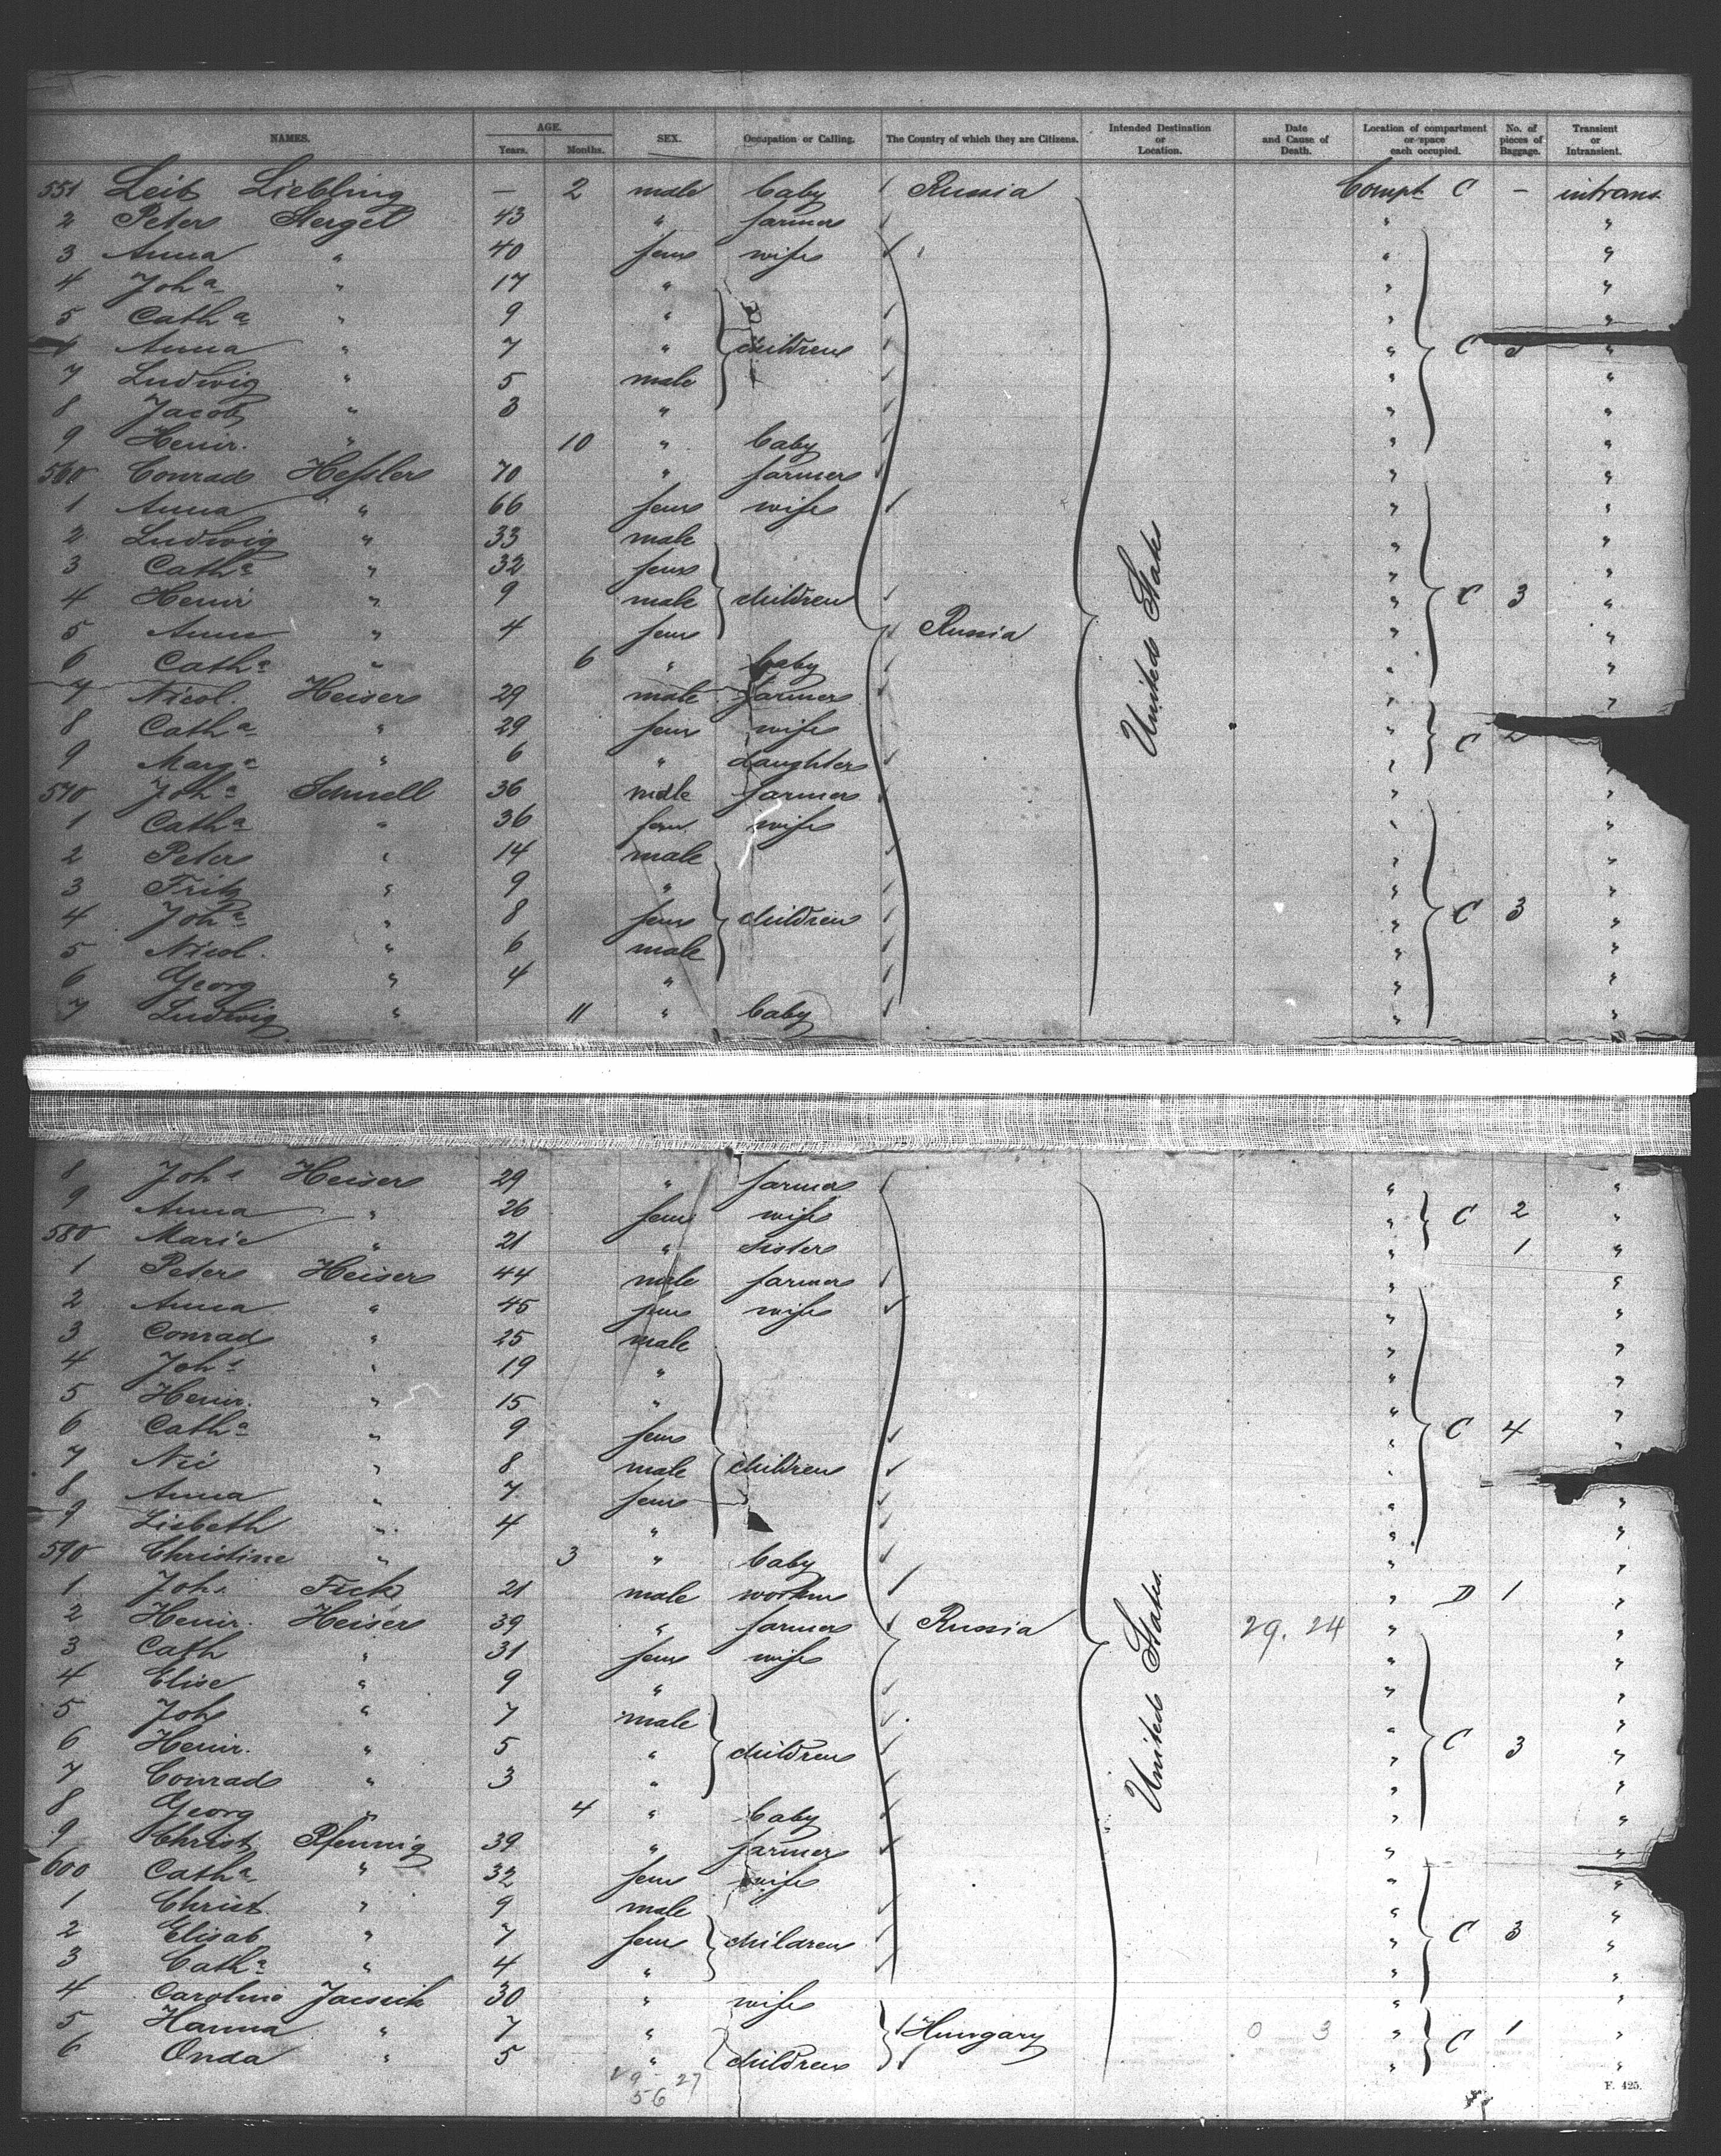 NAMES. AGE. Years. Months. SEX. Occupation or Calling. The Country of which they are Citizens. Intended Destination or Location. Date and Cause of Death. Location of compartment or space each occupied. No. of pieces of Baggage. Transient or Intransient.
551 Leib Liebling — 2 male baby Russia Compt C — intrans
2 Peter Stergel 43 " farmer " "
3 Anna " 40 fem wife " "
4 Joha " 17 " " "
5 Catha " 9 " " "
Anna " 7 " children " C "
7 Ludwig " 5 male " "
8 Jacob " 3 " " "
9 Heinr. " 10 " baby " "
560 Conrad Heßler 70 " farmer " "
1 Anna " 66 fem wife " "
2 Ludwig " 33 male " "
3 Catha " 32 fem " "
4 Heinr " 9 male children " C 3 "
5 Anna " 4 fem Russia United States " "
6 Catha " 6 " baby " "
7 Nicol. Heiser 29 male farmer " "
8 Catha " 29 fem wife " C
9 Marga " 6 " daughter " "
570 Joha Schnell 36 male farmer " "
1 Catha " 36 fem wife " "
2 Peter " 14 male " "
3 Fritz " 9 " " "
4 Joha " 8 fem children " C 3 "
5 Nicol. " 6 male " "
6 Georg " 4 " " "
7 Ludwig " 11 " baby " "
8 Johs Heiser 29 " farmer " "
9 Anna " 26 fem wife " C 2 "
580 Marie " 21 " sister " 1 "
1 Peter Heiser 44 male farmer " "
2 Anna " 45 fem wife " "
3 Conrad " 25 male " "
4 Johs " 19 " " "
5 Heinr. " 15 " " "
6 Catha " 9 fem " C 4 "
7 Nic " 8 male children " "
8 Anna " 7 fem " "
9 Lisbeth " 4 " " "
590 Christine " 3 " baby " "
1 Johs. Fick 21 male workm " D 1 "
2 Heinr. Heiser 39 " farmer Russia United States. 29. 24 " "
3 Cath " 31 fem wife " "
4 Elise " 9 " " "
5 Joh " 7 male " "
6 Heinr. " 5 " children " C 3 "
7 Conrad " 3 " " "
8 Georg " 4 " baby " "
9 Christ. Pfennig 39 " farmer " "
600 Catha " 32 fem wife " "
1 Christ. " 9 male " "
2 Elisab. " 7 fem children " C 3 "
3 Catha " 4 " " "
4 Caroline 30 " wife " "
5 Hanna " 7 " Hungary 0 3 " C 1 "
6 Onda " 5 " children " "
29 - 27
56
F. 425.